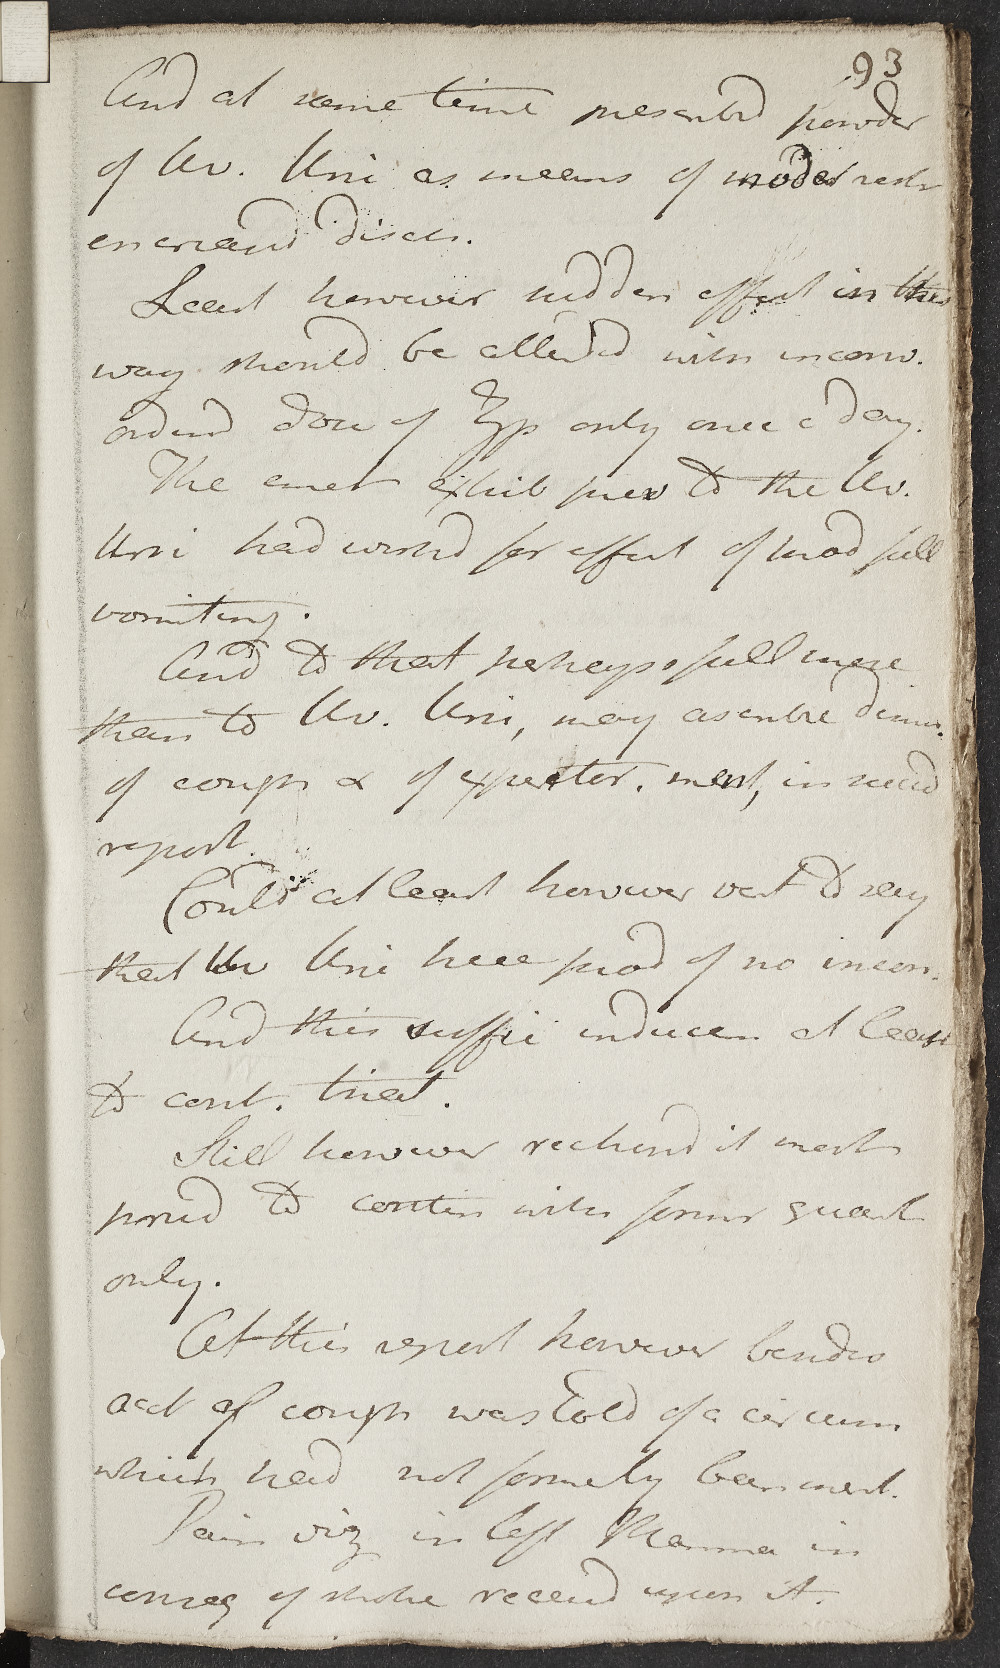 93
And at same time prescribd powder
of Uv. Ursi as means of moder
increasd disch.
Least however sudden effect in this
way should be attended with inconv.
orderd dose of ʒfs only once a day.
The emet exhib prev to the Uv.
Ursi had workd for effect of prod full
vomiting.
And to that perhaps full more
than to Uv. Ursi, may ascribe dimin.
of cough & of expector. ment, in secnd
report.
Could at least however vent to say
that Uv Ursi here prod of no incon.
And this suffic inducem at least
to cont. treat.
Still however reckond it most
prud to contin with former quant
only.
At this report however besides
acct of cough was told of a circum
which had not formerly been ment.
Pain viz in left Mamma in
conseq of stroke receivd upon it.